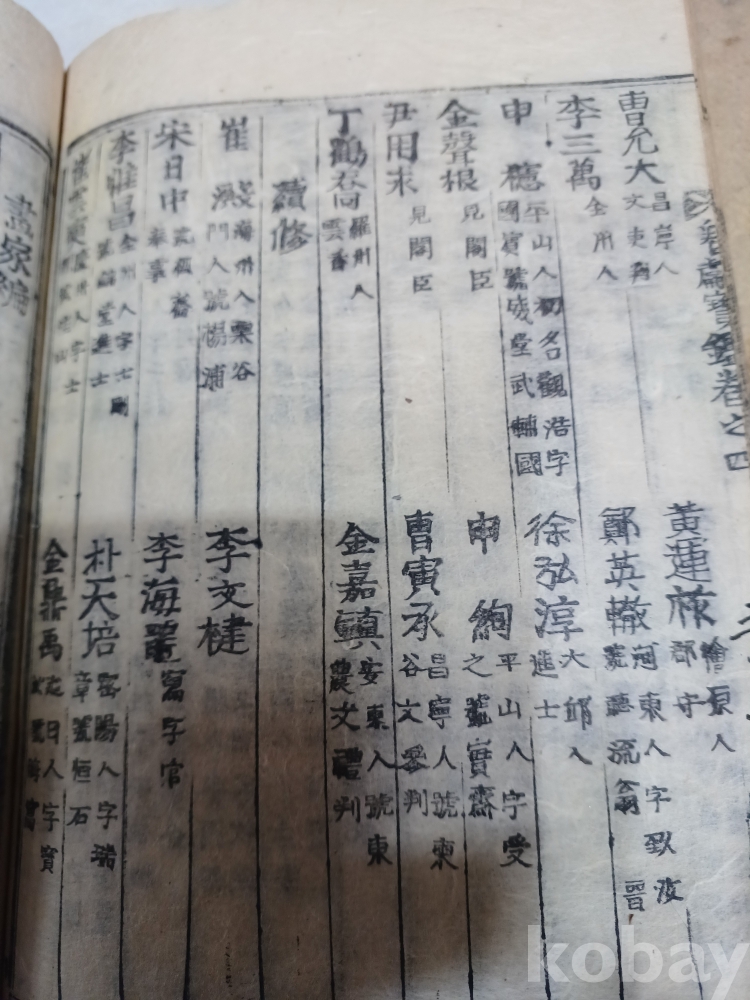 卷之四
曺允大 昌岸人 文吏判
黃蓮 原人 郡守
李三萬 全州人
鄭英轍 河東人字致 號聽流翁 晋
申穗 平山人初名觀浩字國賓號威堂武輔國
徐弘淳 大邱人 進士
金聲根 見閣臣
申絢 平山人字受之號實齋
尹用求 見閣臣
曺寅承 昌寧人號東谷文參判
丁鶴喬 羅州人 雲
金嘉鎮 安東人號東農文禮判
續修
崔澱 海州人栗谷門人號楊浦
李文楗
宋日中
李海龍 寫字官
李 昌 全州人字士剛 堂進士
朴天培 密陽人字瑞章號恒石
人字士
金鼎禹 人字寶
畵家編
kobay